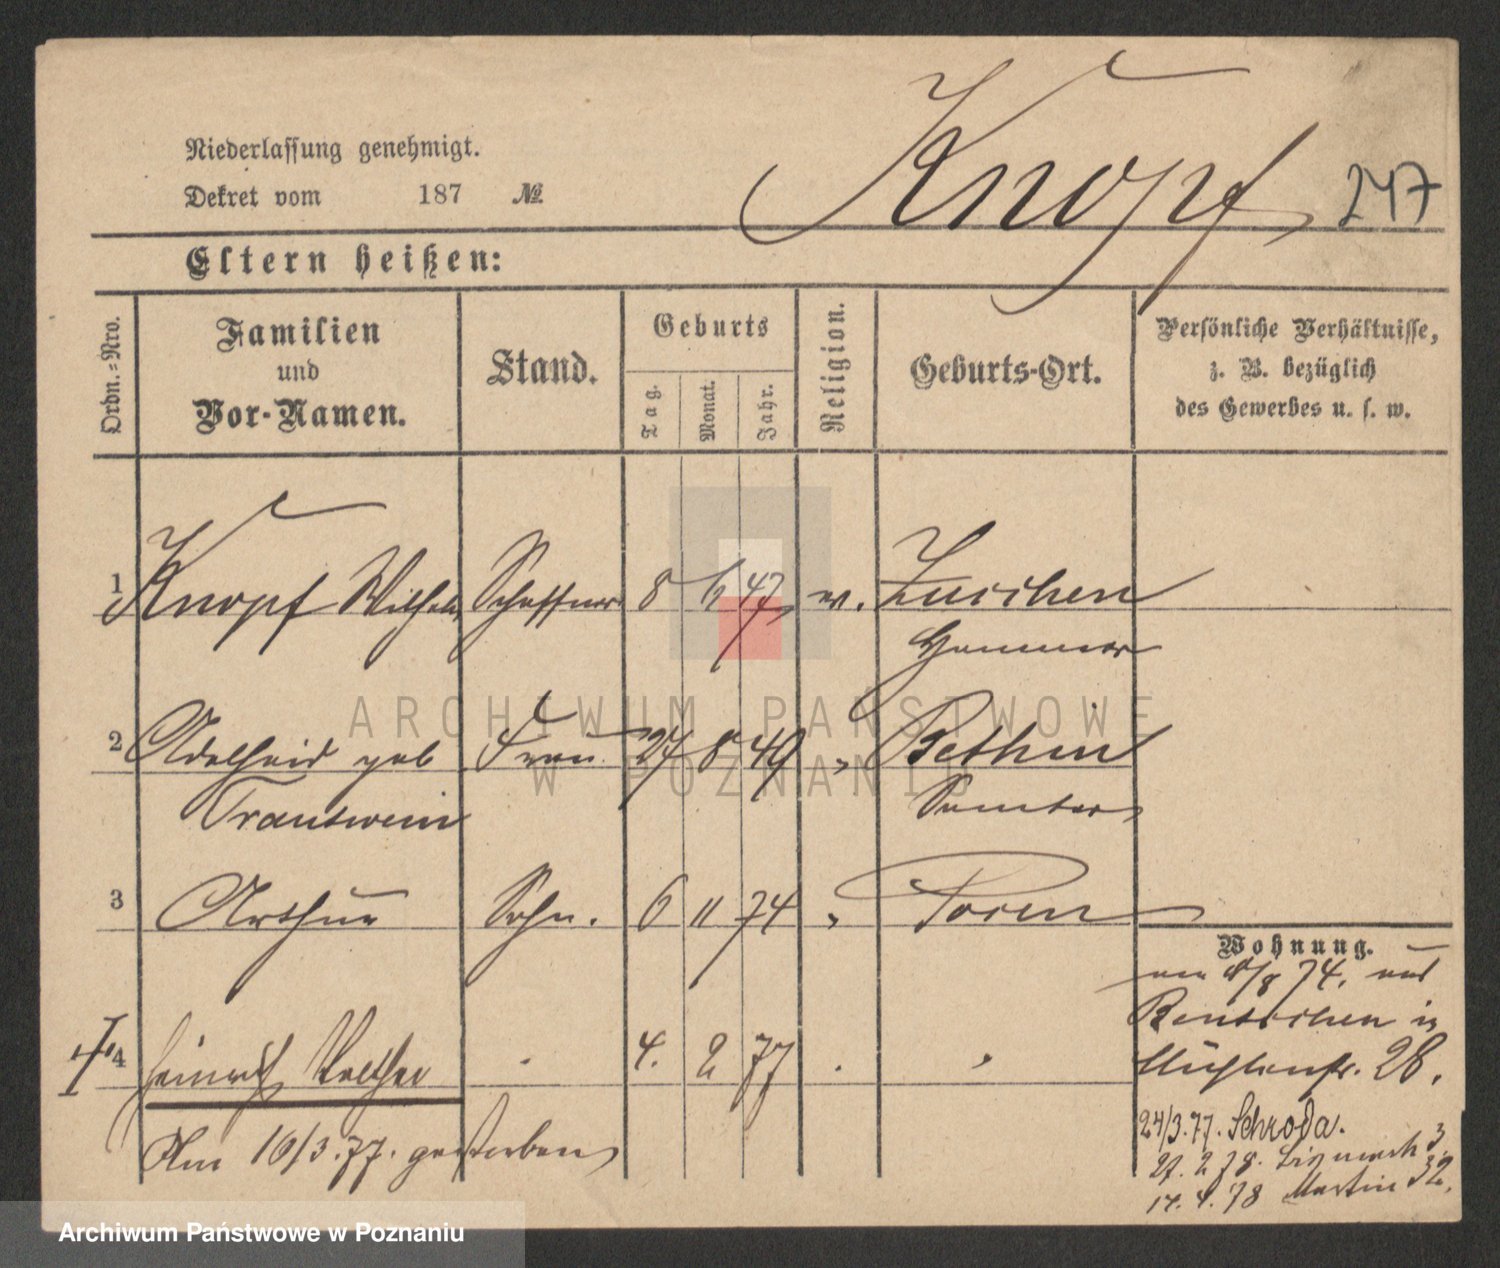 Knopf
247
Niederlassung genehmigt.
Dekret vom 187 №
Eltern heißen:
Ordn.=Nro.
Familien und Vor-Namen.
Stand.
Geburts
Tag. Monat. Jahr.
Religion.
Geburts-Ort.
Persönliche Verhältnisse, z. B. bezüglich des Gewerbes u. s. w.
1 Knopf Wilhelm Schaffner 8 6 47 ev. Zuschen
Hammer
2 Adelheid geb Frau 27 8 49 " Bethin
Trautwein Samter
3 Arthur Sohn. 6 11 74 " Posen
Wohnung.
am 8/8 74. aus
Bentschen in
Mühlenstr. 28.
4 Heinrich Walther " 4. 2 77 " "
Am 16/3.77. gestorben
24/3.77. Schroda.
27. 2 78. Bismarck 3
14. 4. 78 Martin 32.
ARCHIWUM PAŃSTWOWE
W POZNANIU
Archiwum Państwowe w Poznaniu